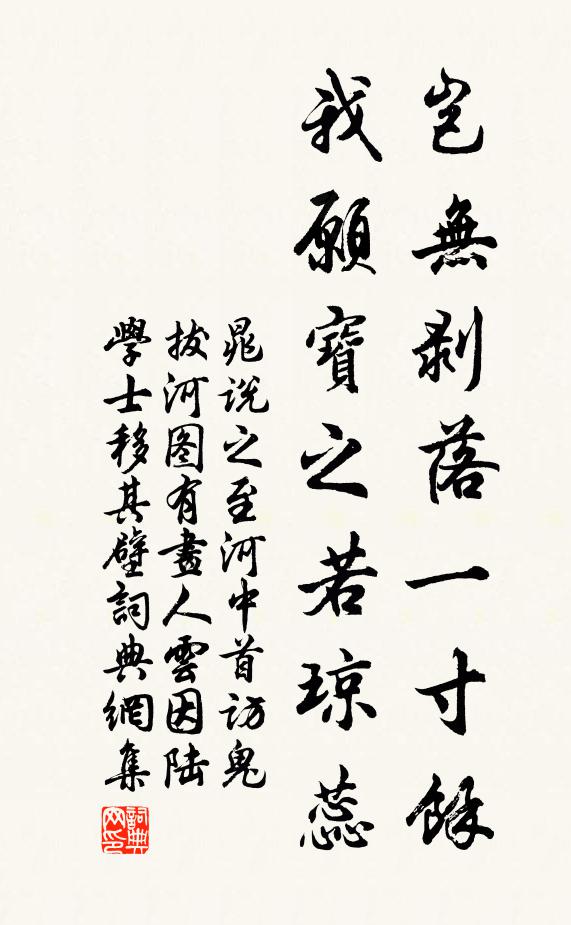 豈無剥落一寸餘
我願寶之若琼蕊
晁说之至河中首访鬼
拔河图有畫人雲因陆
學士移其壁詞典網集
詞典网印